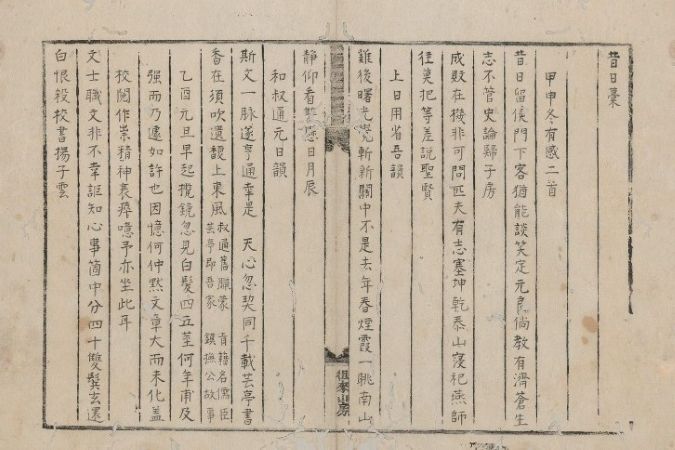 昔日藁
甲申冬有感二首
昔日留侯門下客猶能談笑定元良倘教有濟蒼生
志不管史論歸子房
成敗在機非可問匹夫有志塞坤乾泰山寢祀燕師
徃美犯等差說聖賢
上日用省吾韻
雞後曙光覺斬新關中不是去年春煙霞一眺南山
靜仰看日月辰
和叔通元日韻
斯文一脉遂亨通幸是 天心忽契同千載芸亭書
香在須吹遺馥上東風
叔通舊職蒙 肯籍名儒臣
芸亭即吾家 鎮撫公故事
乙酉元旦早起攬鏡忽見白髮四五莖何年甫及
強而乃遽如許也因憶何仲黙文章大而未化蓋
校閱作祟精神衰瘁噫予亦坐此耳
文士職文非不幸誰知心事箇中分四十雙鬢玄還
白恨殺校書揚子雲
徂來山房